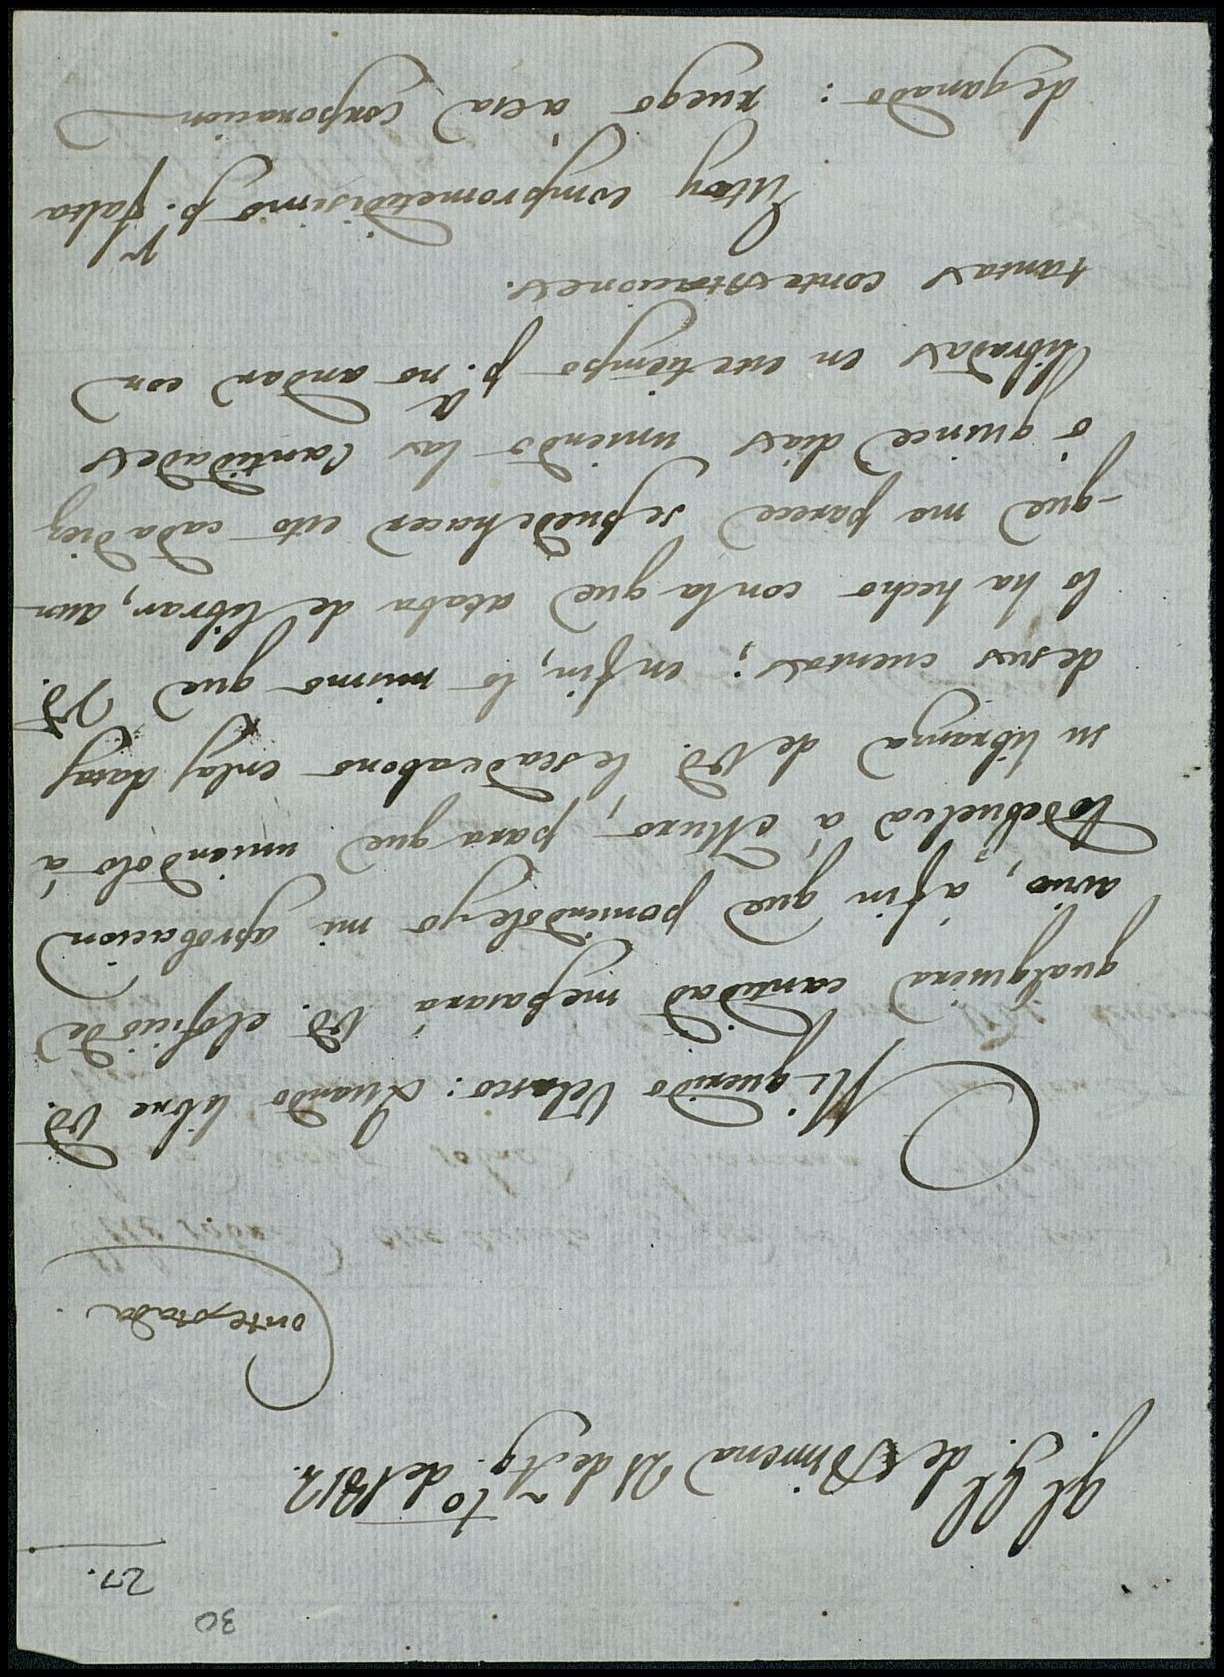 30
27.
Ql. Gl. de Ximena 21 de Agto. de 1812.
Contestada.
Mi querido Velasco: Quando libre Vd.
qualquiera cantidad me pasará Vd. el oficio de
aviso, á fin que poniendole yo mi aprobacion
lo debuelva á Muro, para que uniendolo á
su libranza de Vd. le sea de abono en las datas
de sus cuentas; en fin, lo mismo que Vd.
lo ha hecho con la que acaba de librar, aun-
que me parece se puede hacer esto cada diez
ó quince dias uniendo las Cantidades
libradas en ese tiempo pa. no andar con
tantas contestaciones.
Estoy comprometidisimo pr. falta
de ganado: ruego á esa corporacion